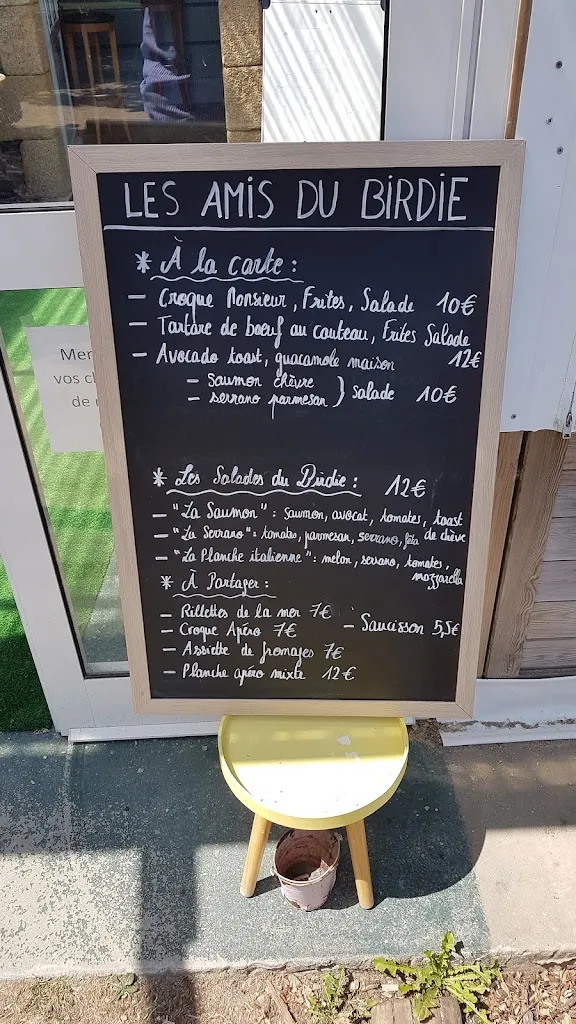 LES AMIS DU BIRDIE
* À la carte :
- Croque Monsieur, Frites, Salade 10€
- Tartare de bœuf au couteau, Frites Salade
12€
- Avocado toast, guacamole maison
- saumon chèvre
- serrano parmesan
} salade 10€
* Les Salades du Birdie : 12€
- "La Saumon" : saumon, avocat, tomates, toast
de chèvre
- "La Serrano" : tomates, parmesan, serrano, féta
- "La Planche italienne" : melon, serrano, tomates,
mozzarella
* À Partager :
- Rillettes de la mer 7€
- Croque Apéro 7€
- Saucisson 5,5€
- Assiette de fromages 7€
- Planche apéro mixte 12€
Mer
vos ch
de